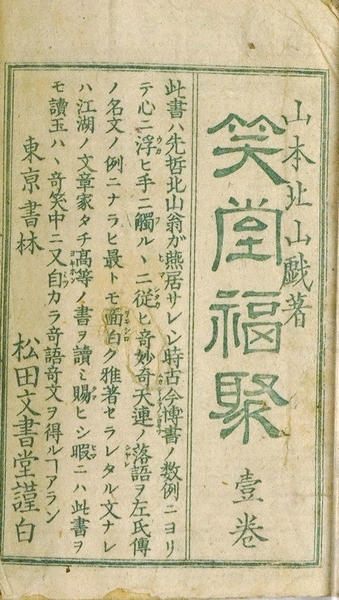 山本北山戯著
笑堂福聚 壹巻
此書ハ先哲北山翁が燕居サレシ時古今博書ノ数例ニヨリ
テ心ニ浮ヒ手ニ觸ルヽニ従ヒ奇妙奇天連ノ落語ヲ左氏傳
ノ名文ノ例ニナラヒ最トモ面白ク雅著セラレタル文ナレ
ハ江湖ノ文章家タチ高等ノ書ヲ讀ミ賜ヒシ暇ニハ此書ヲ
モ讀玉ハヽ奇笑中ニ又自カラ奇語奇文ヲ得ルヿアラン
東京書林 松田文書堂謹白